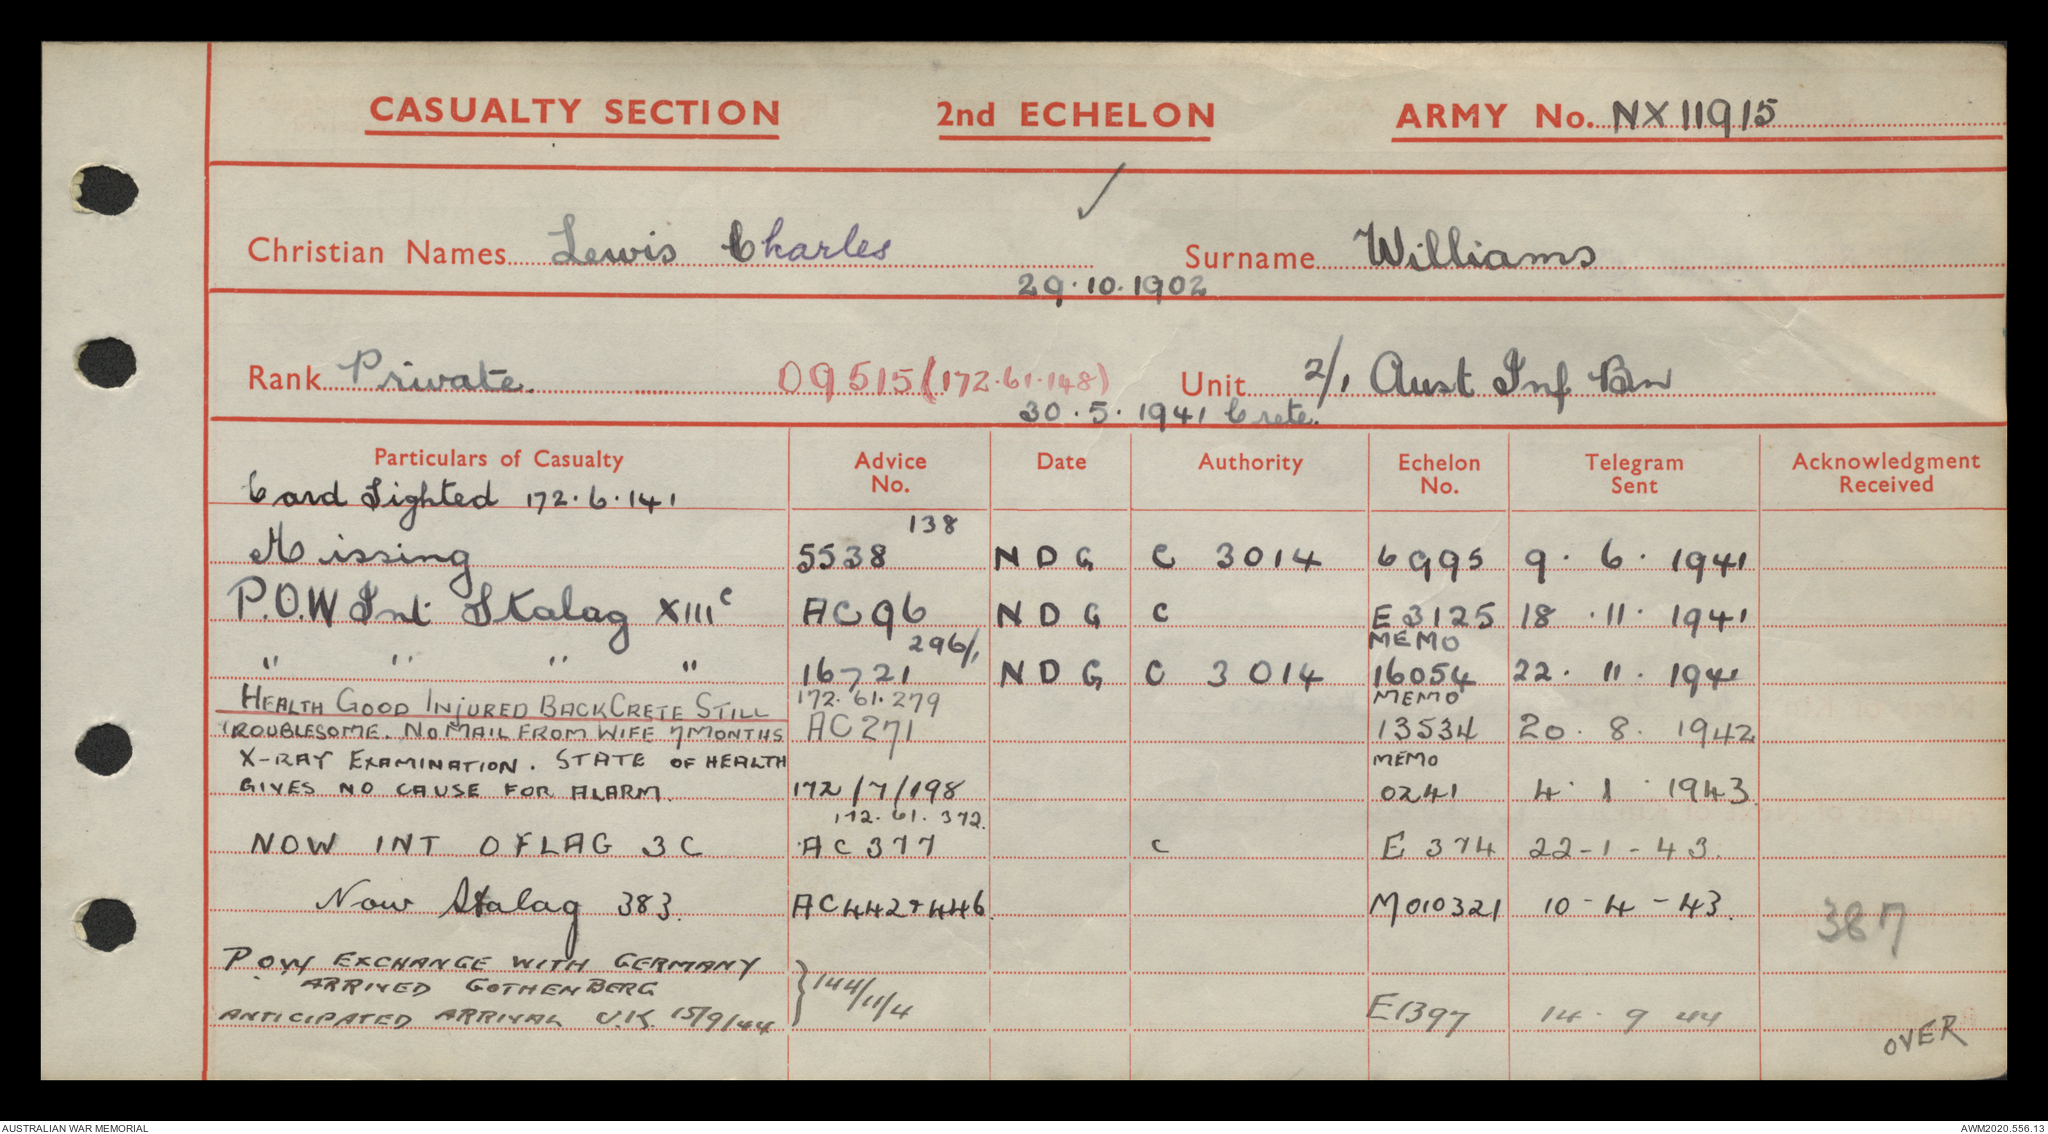 CASUALTY SECTION 2nd ECHELON ARMY No. NX11915
Christian Names Lewis Charles Surname Williams
29.10.1902
Rank Private. 09515 (172.61.148) Unit 2/1 Aust Inf Bn
30.5.1941 Crete.
Particulars of Casualty Advice No. Date Authority Echelon No. Telegram Sent Acknowledgment Received
Card Sighted 172.6.141
138
Missing 5538 N D G C 3014 6995 9.6.1941
P.O.W Int Stalag XIIIc AC96 N D G C E3125 18.11.1941
296/1 MEMO
" " " " 16721 N D G C 3014 16054 22.11.1941
HEALTH GOOD INJURED BACK CRETE STILL 172.61.279 MEMO
TROUBLESOME. NO MAIL FROM WIFE 7 MONTHS AC271 13534 20.8.1942
X-RAY EXAMINATION. STATE OF HEALTH MEMO
GIVES NO CAUSE FOR ALARM. 172/7/198 0241 4.1.1943
172.61.372.
NOW INT OFLAG 3C AC377 C E374 22-1-43.
Now Stalag 383. AC442+446 M010321 10-4-43.
387
P.O.W EXCHANGE WITH GERMANY
ARRIVED GOTHENBERG } 144/11/4
ANTICIPATED ARRIVAL U.K. 15/9/44 E1397 14.9 44
OVER
AUSTRALIAN WAR MEMORIAL AWM2020.556.13